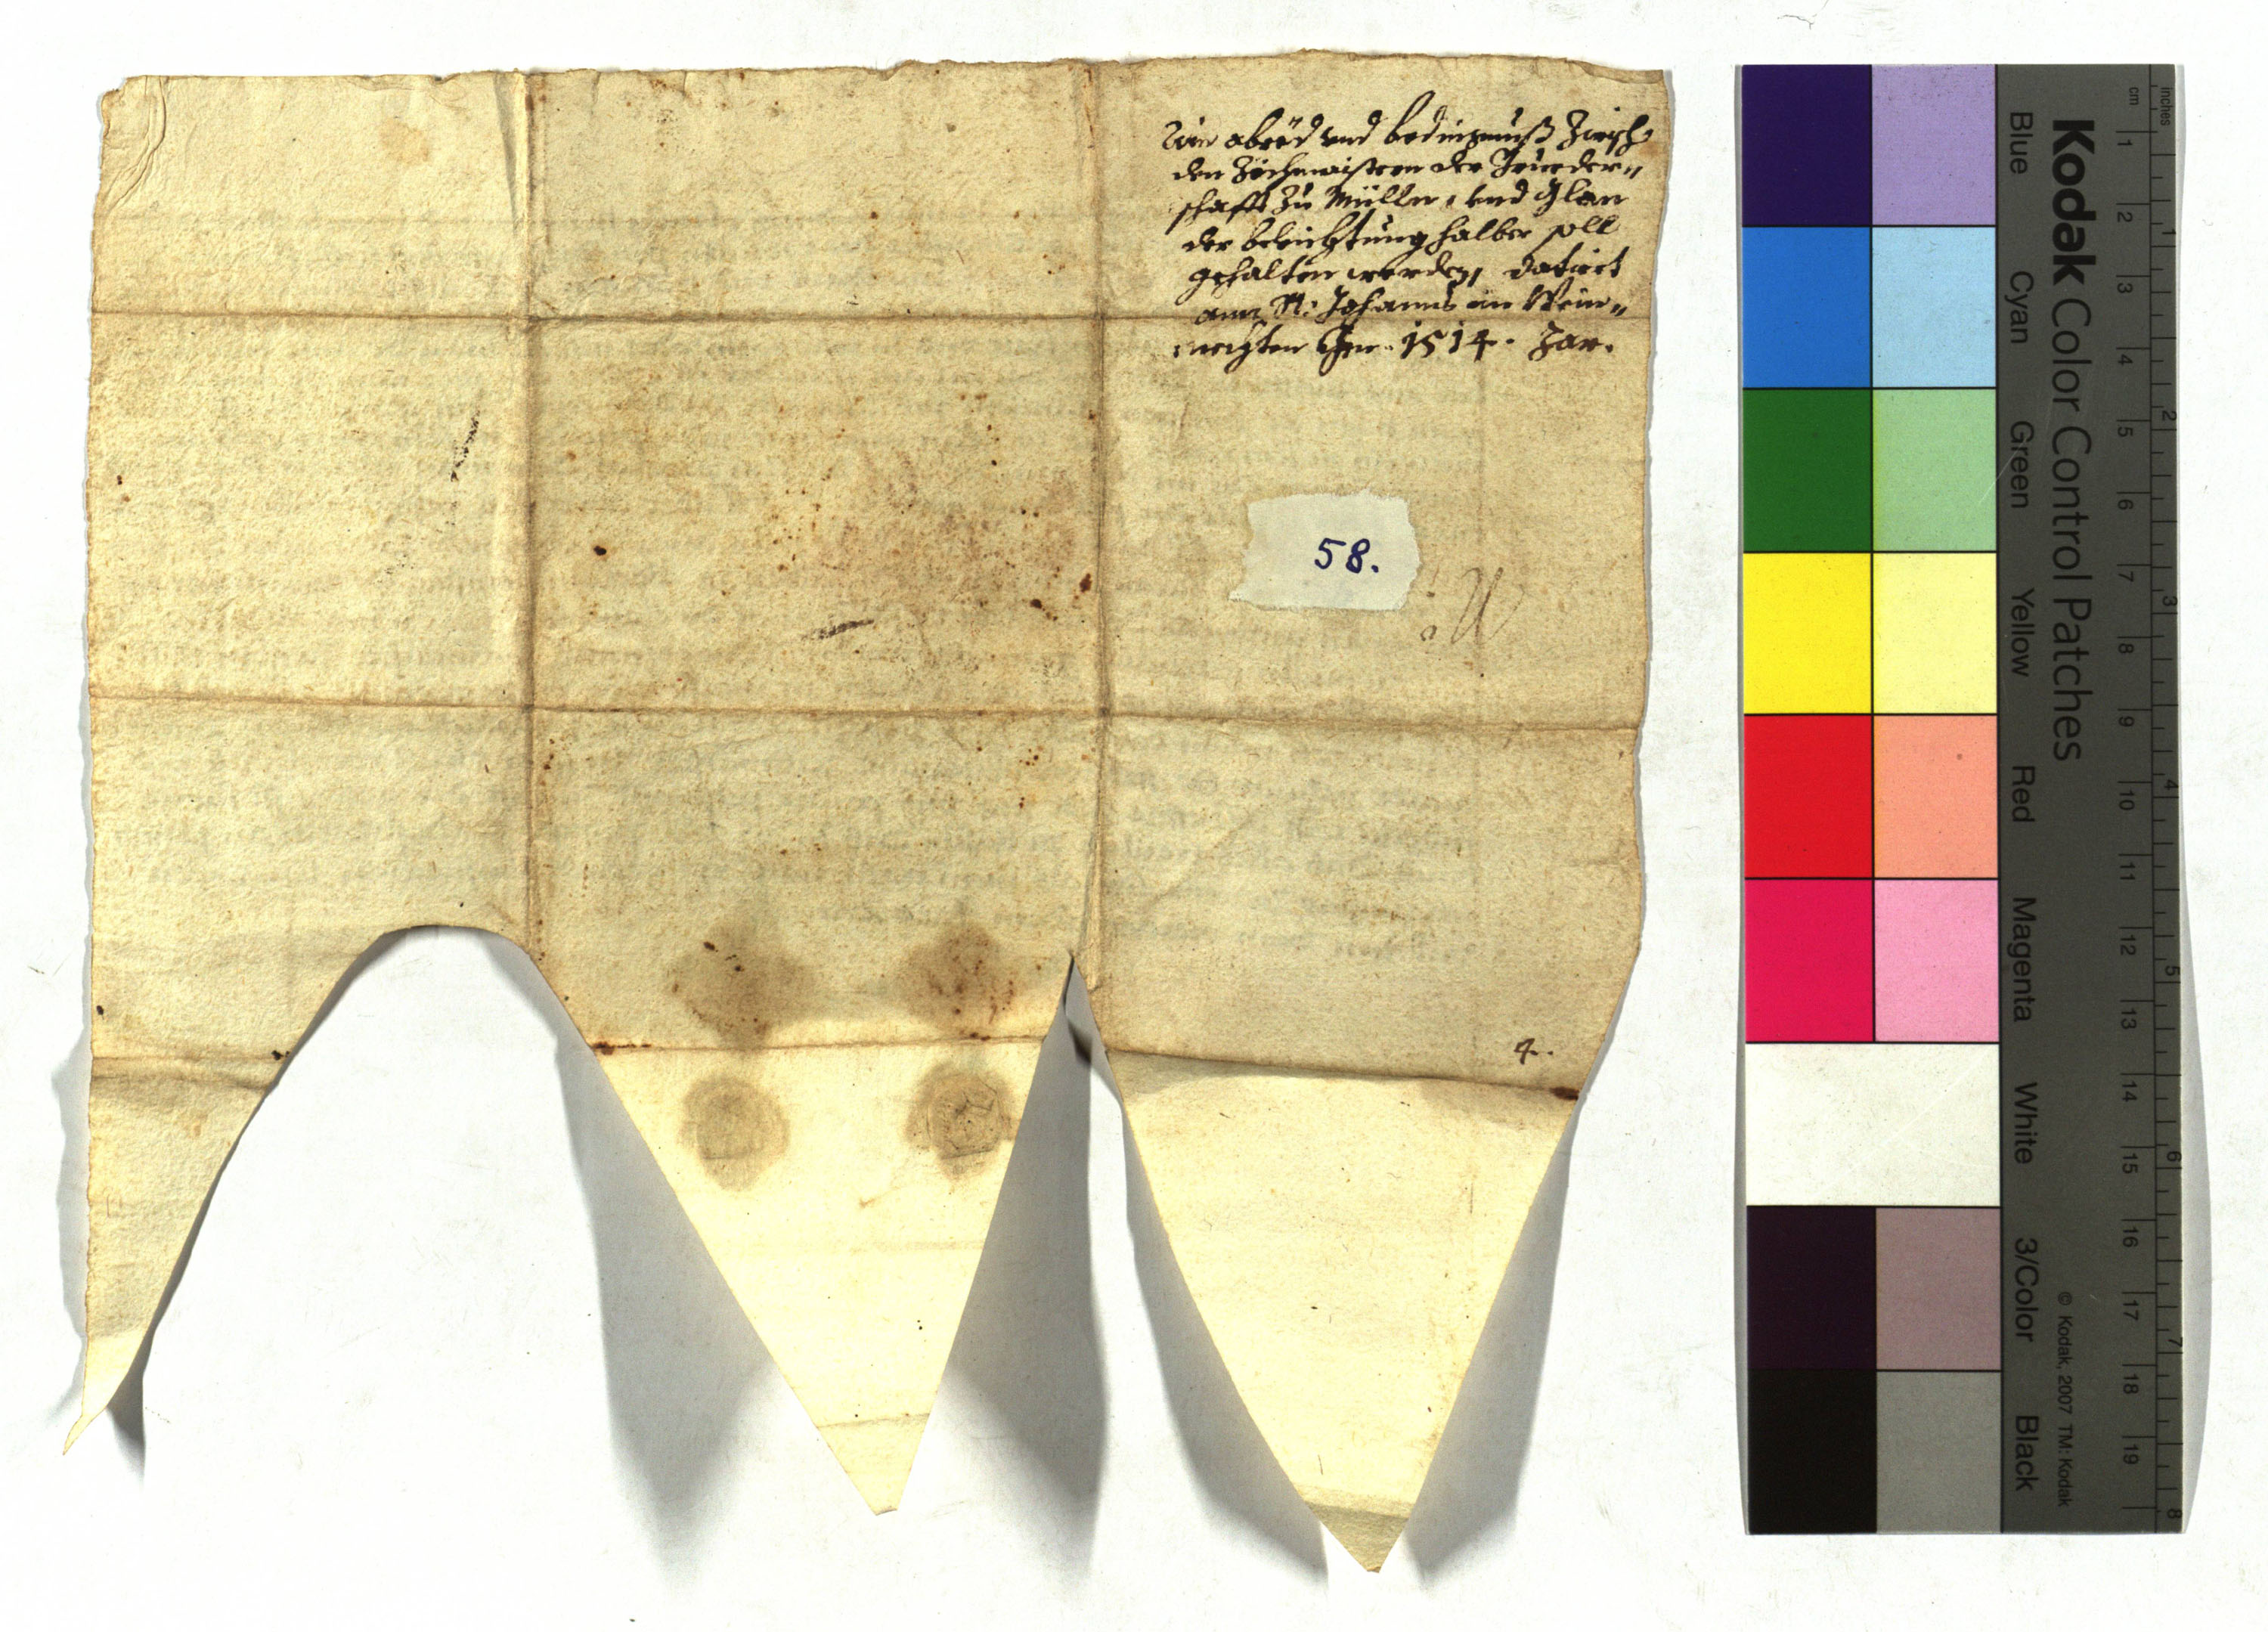 Ain abred vnd bedingnuß Zwisch,
den Zöchmaistern der Brueder„
schafft zu Müllen, vnd Glan
der beleichtung halber soll
gehalten werden, datiert
ann St: Johanns in Wein„
nechten Im. 1514. Jar.
58.
4.
Kodak Color Control Patches
Blue Cyan Green Yellow Red Magenta White 3/Color Black
© Kodak, 2007 TM: Kodak
cm 1 2 3 4 5 6 7 8 9 10 11 12 13 14 15 16 17 18 19
inches 1 2 3 4 5 6 7 8